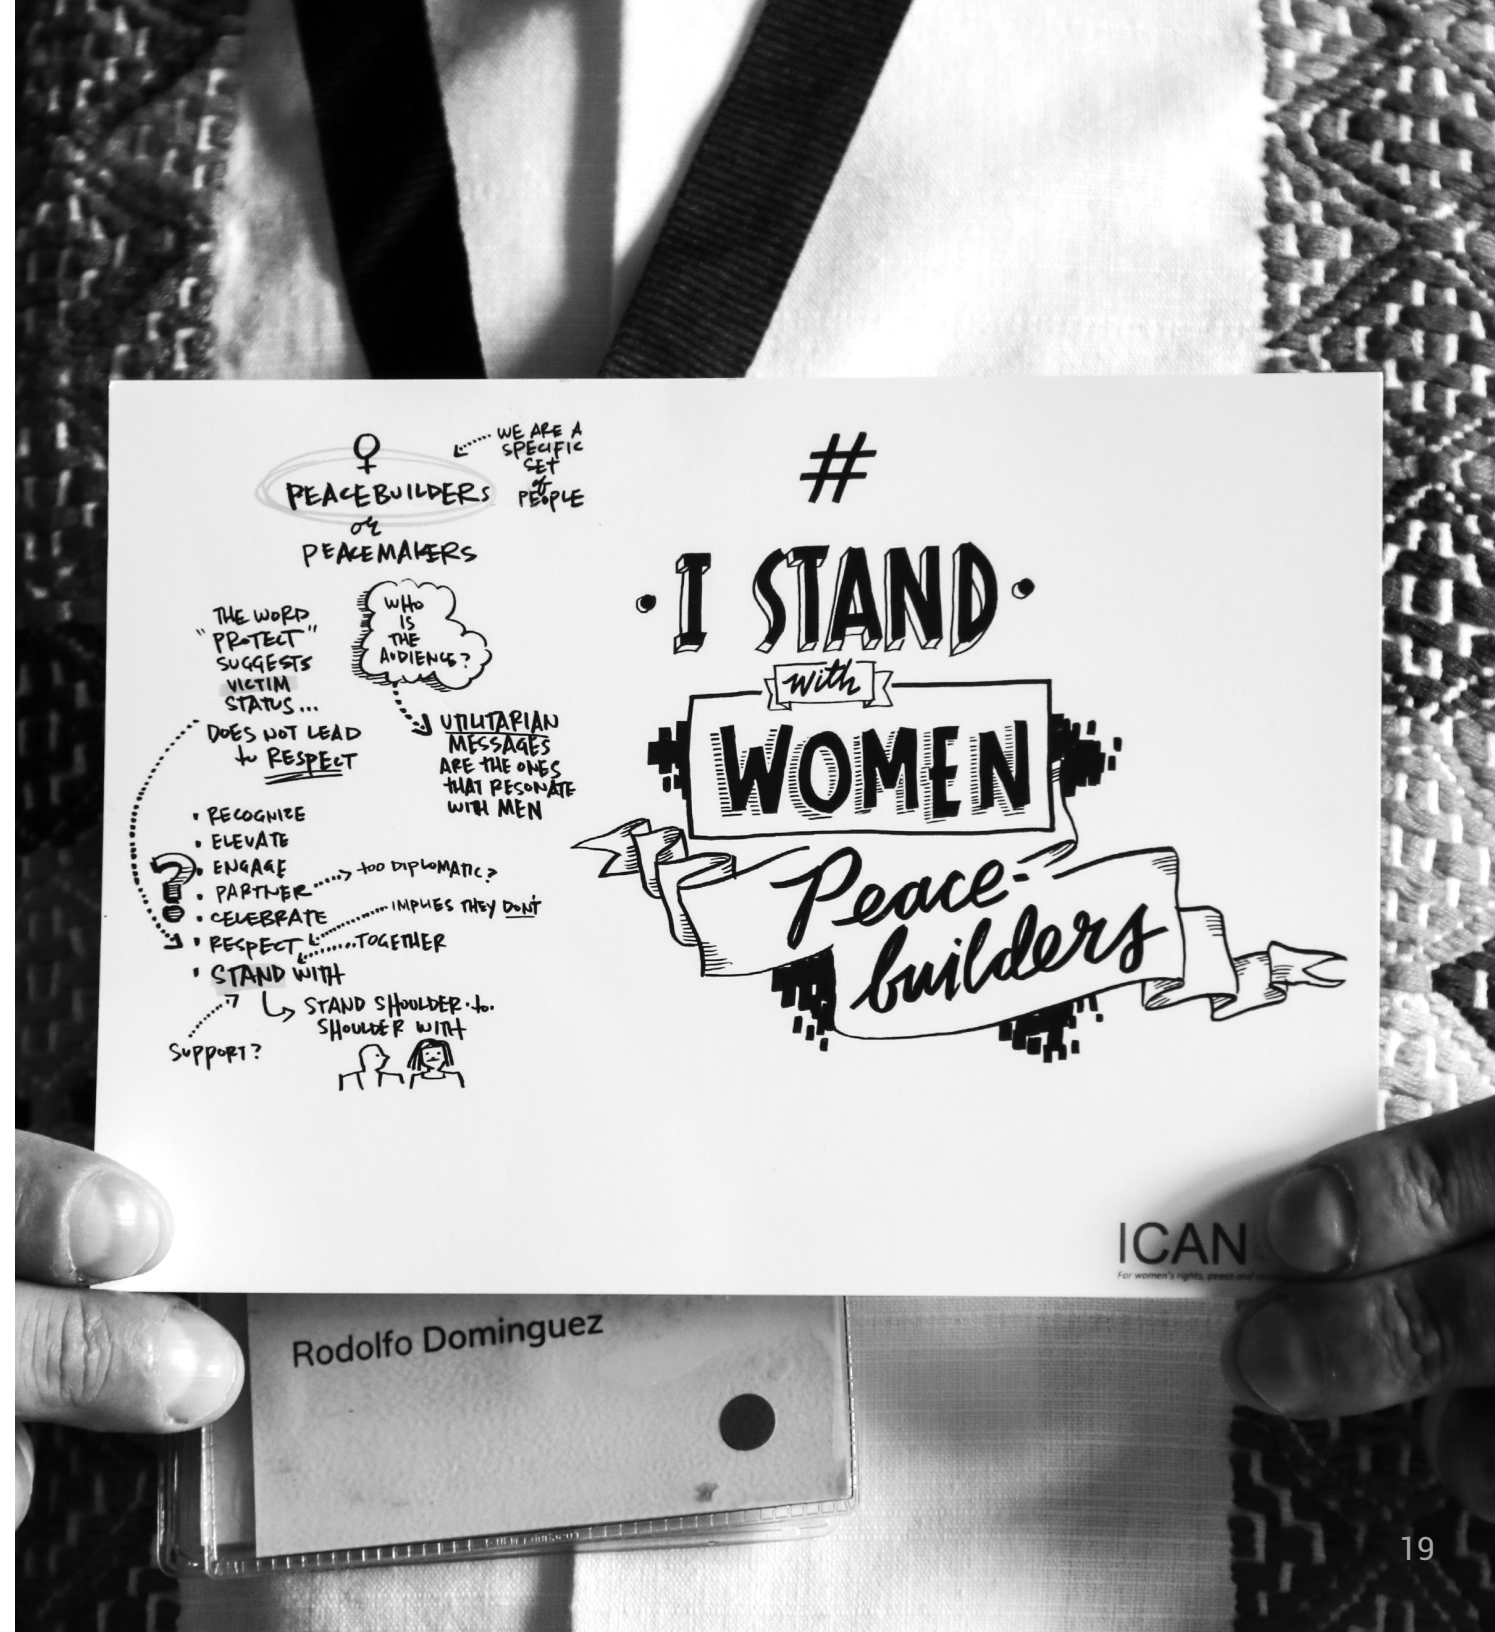 ♀
PEACEBUILDERS
or
PEACEMAKERS
WE ARE A
SPECIFIC
SET
of
PEOPLE
THE WORD
"PROTECT"
SUGGESTS
VICTIM
STATUS...
DOES NOT LEAD
to RESPECT
WHO
IS
THE
AUDIENCE?
UTILITARIAN
MESSAGES
ARE THE ONES
THAT RESONATE
WITH MEN
• RECOGNIZE
• ELEVATE
• ENGAGE
• PARTNER
too DIPLOMATIC?
• CELEBRATE
IMPLIES THEY DON'T
• RESPECT
TOGETHER
• STAND WITH
STAND SHOULDER·to·
SHOULDER WITH
SUPPORT?
?!
#
• I STAND •
with
WOMEN
Peace-
builders
ICAN
For women's rights, peace and
Rodolfo Dominguez
19